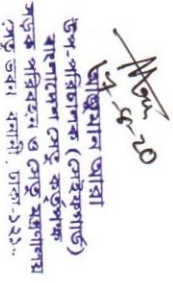 ৭-৬-20
আরমান আরা
উপ-পরিচালক (সেইফগার্ড)
বাংলাদেশ সেতু কর্তৃপক্ষ
সড়ক পরিবহন ও সেতু মন্ত্রণালয়
সেতু ভবন, বনানী, ঢাকা-১২১২